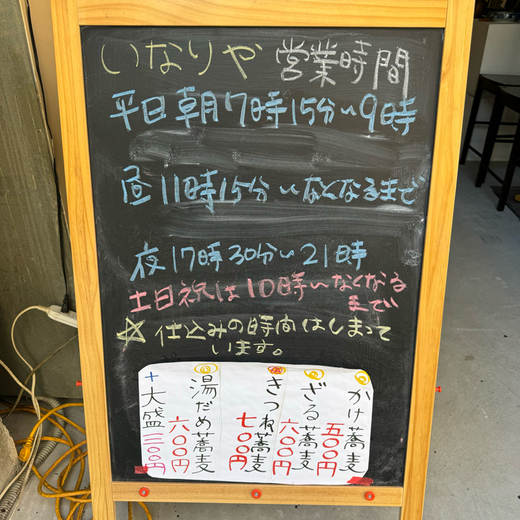 いなりや 営業時間
平日 朝7時15分〜9時
昼11時15分〜なくなるまで
夜17時30分〜21時
土日祝は10時〜なくなる
まで
☆仕込みの時間はしまって
います。
かけ蕎麦
五〇〇円
ざる蕎麦
六〇〇円
きつね蕎麦
七〇〇円
湯だめ蕎麦
六〇〇円
+大盛
二〇〇円